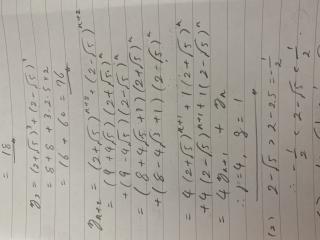 = 18
y₃ = (2+√5)³ + (2-√5)³
= 8 + 8 + 3·2·5×2
= 16 + 60 = 76
yₙ₊₂ = (2+√5)ⁿ⁺² + (2-√5)ⁿ⁺²
= (9+4√5)(2+√5)ⁿ
+ (9-4√5)(2-√5)ⁿ
= (8+4√5+1)(2+√5)ⁿ
+ (8-4√5+1)(2-√5)ⁿ
= 4(2+√5)ⁿ⁺¹ + 1(2+√5)ⁿ
+ 4(2-√5)ⁿ⁺¹ + 1(2-√5)ⁿ
= 4yₙ₊₁ + yₙ
∴ p=4, q=1
(2) 2-√5 > 2-2.5 = -1/2
∴ -1/2 < 2-√5 < 1/2